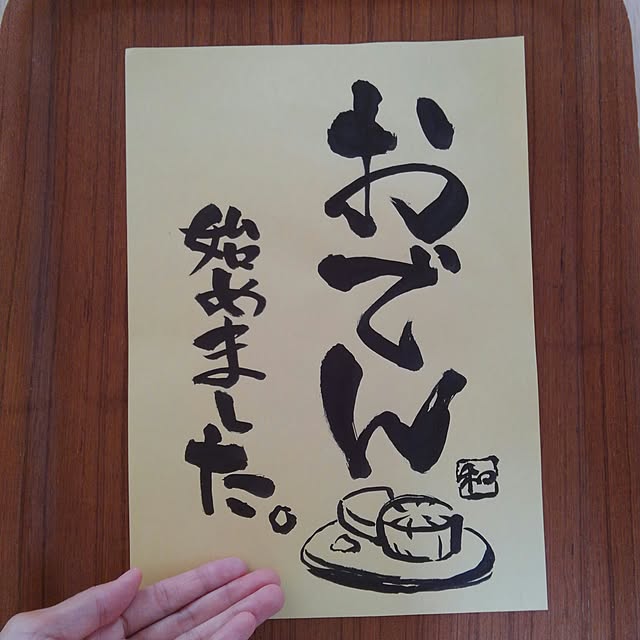 おでん
始めました。
和